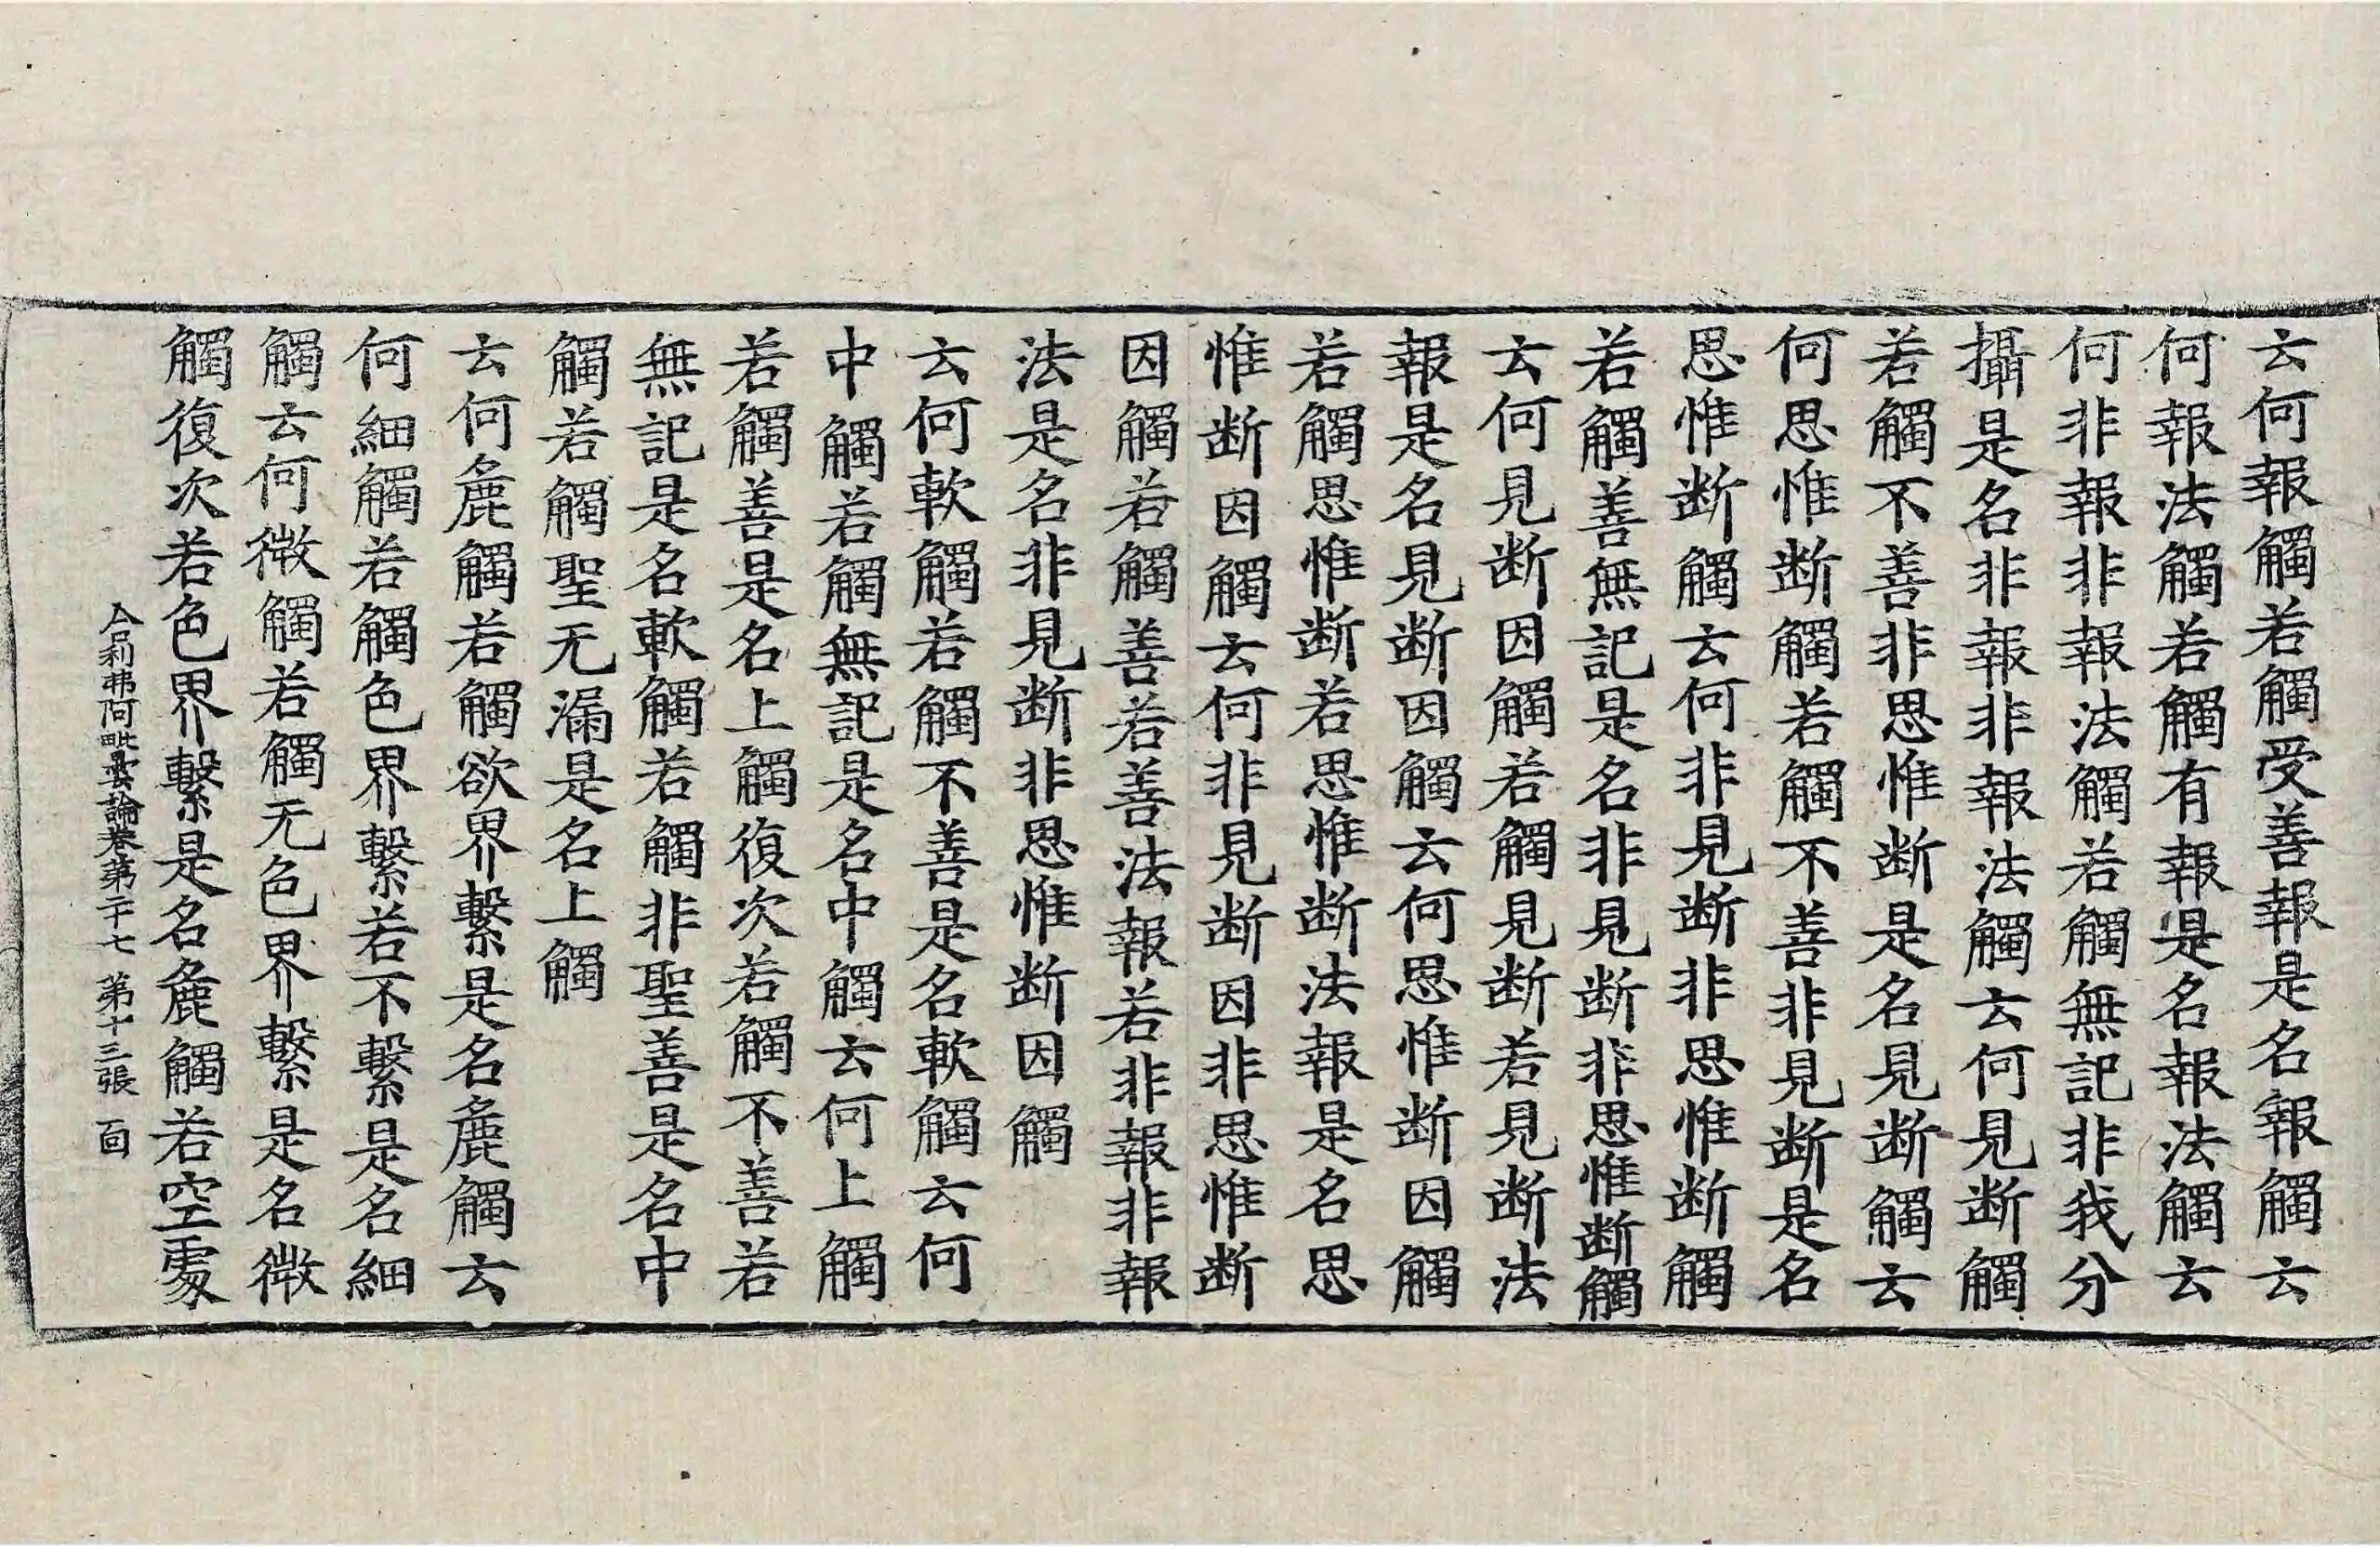 云何報觸若觸受善報是名報觸云
何報法觸若觸有報是名報法觸云
何非報非報法觸若觸無記非我分
攝是名非報非報法觸云何見断觸
若觸不善非思惟断是名見断觸云
何思惟断觸若觸不善非見断是名
思惟断觸云何非見断非思惟断觸
若觸善無記是名非見断非思惟断觸
云何見断因觸若觸見断若見断法
報是名見断因觸云何思惟断因觸
若觸思惟断若思惟断法報是名思
惟断因觸云何非見断因非思惟断
因觸若觸善若善法報若非報非報
法是名非見断非思惟断因觸
云何軟觸若觸不善是名軟觸云何
中觸若觸無記是名中觸云何上觸
若觸善是名上觸復次若觸不善若
無記是名軟觸若觸非聖善是名中
觸若觸聖无漏是名上觸
云何麁觸若觸欲界繫是名麁觸云
何細觸若觸色界繫若不繫是名細
觸云何微觸若觸无色界繫是名微
觸復次若色界繫是名麁觸若空處
舍利弗阿毗曇論卷第二十七 第十三張